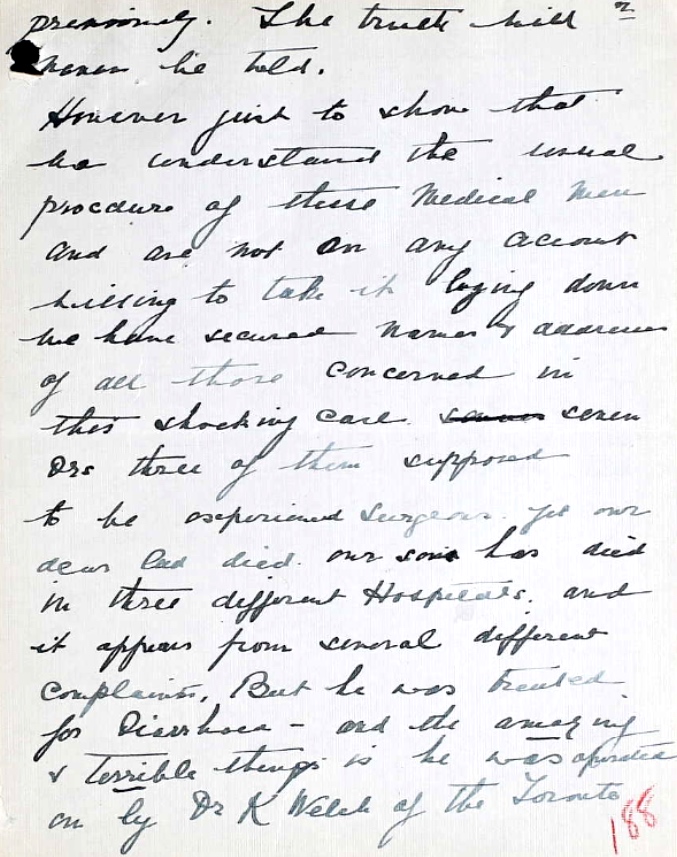 previously. The truth will
never be told.
However just to show that
we understand the usual
procedure of these Medical Men
and are not on any account
willing to take it laying down
we have secured names & addresses
of all those concerned in
this shocking case. seven
Drs three of them supposed
to be experienced Surgeons. yet our
dear lad died. our son has died
in three different Hospitals. and
it appears from several different
complaints. But he was treated
for Diarrhoea - and the amazing
& terrible things is he was operated
on by Dr K Welch of the Toronto
188